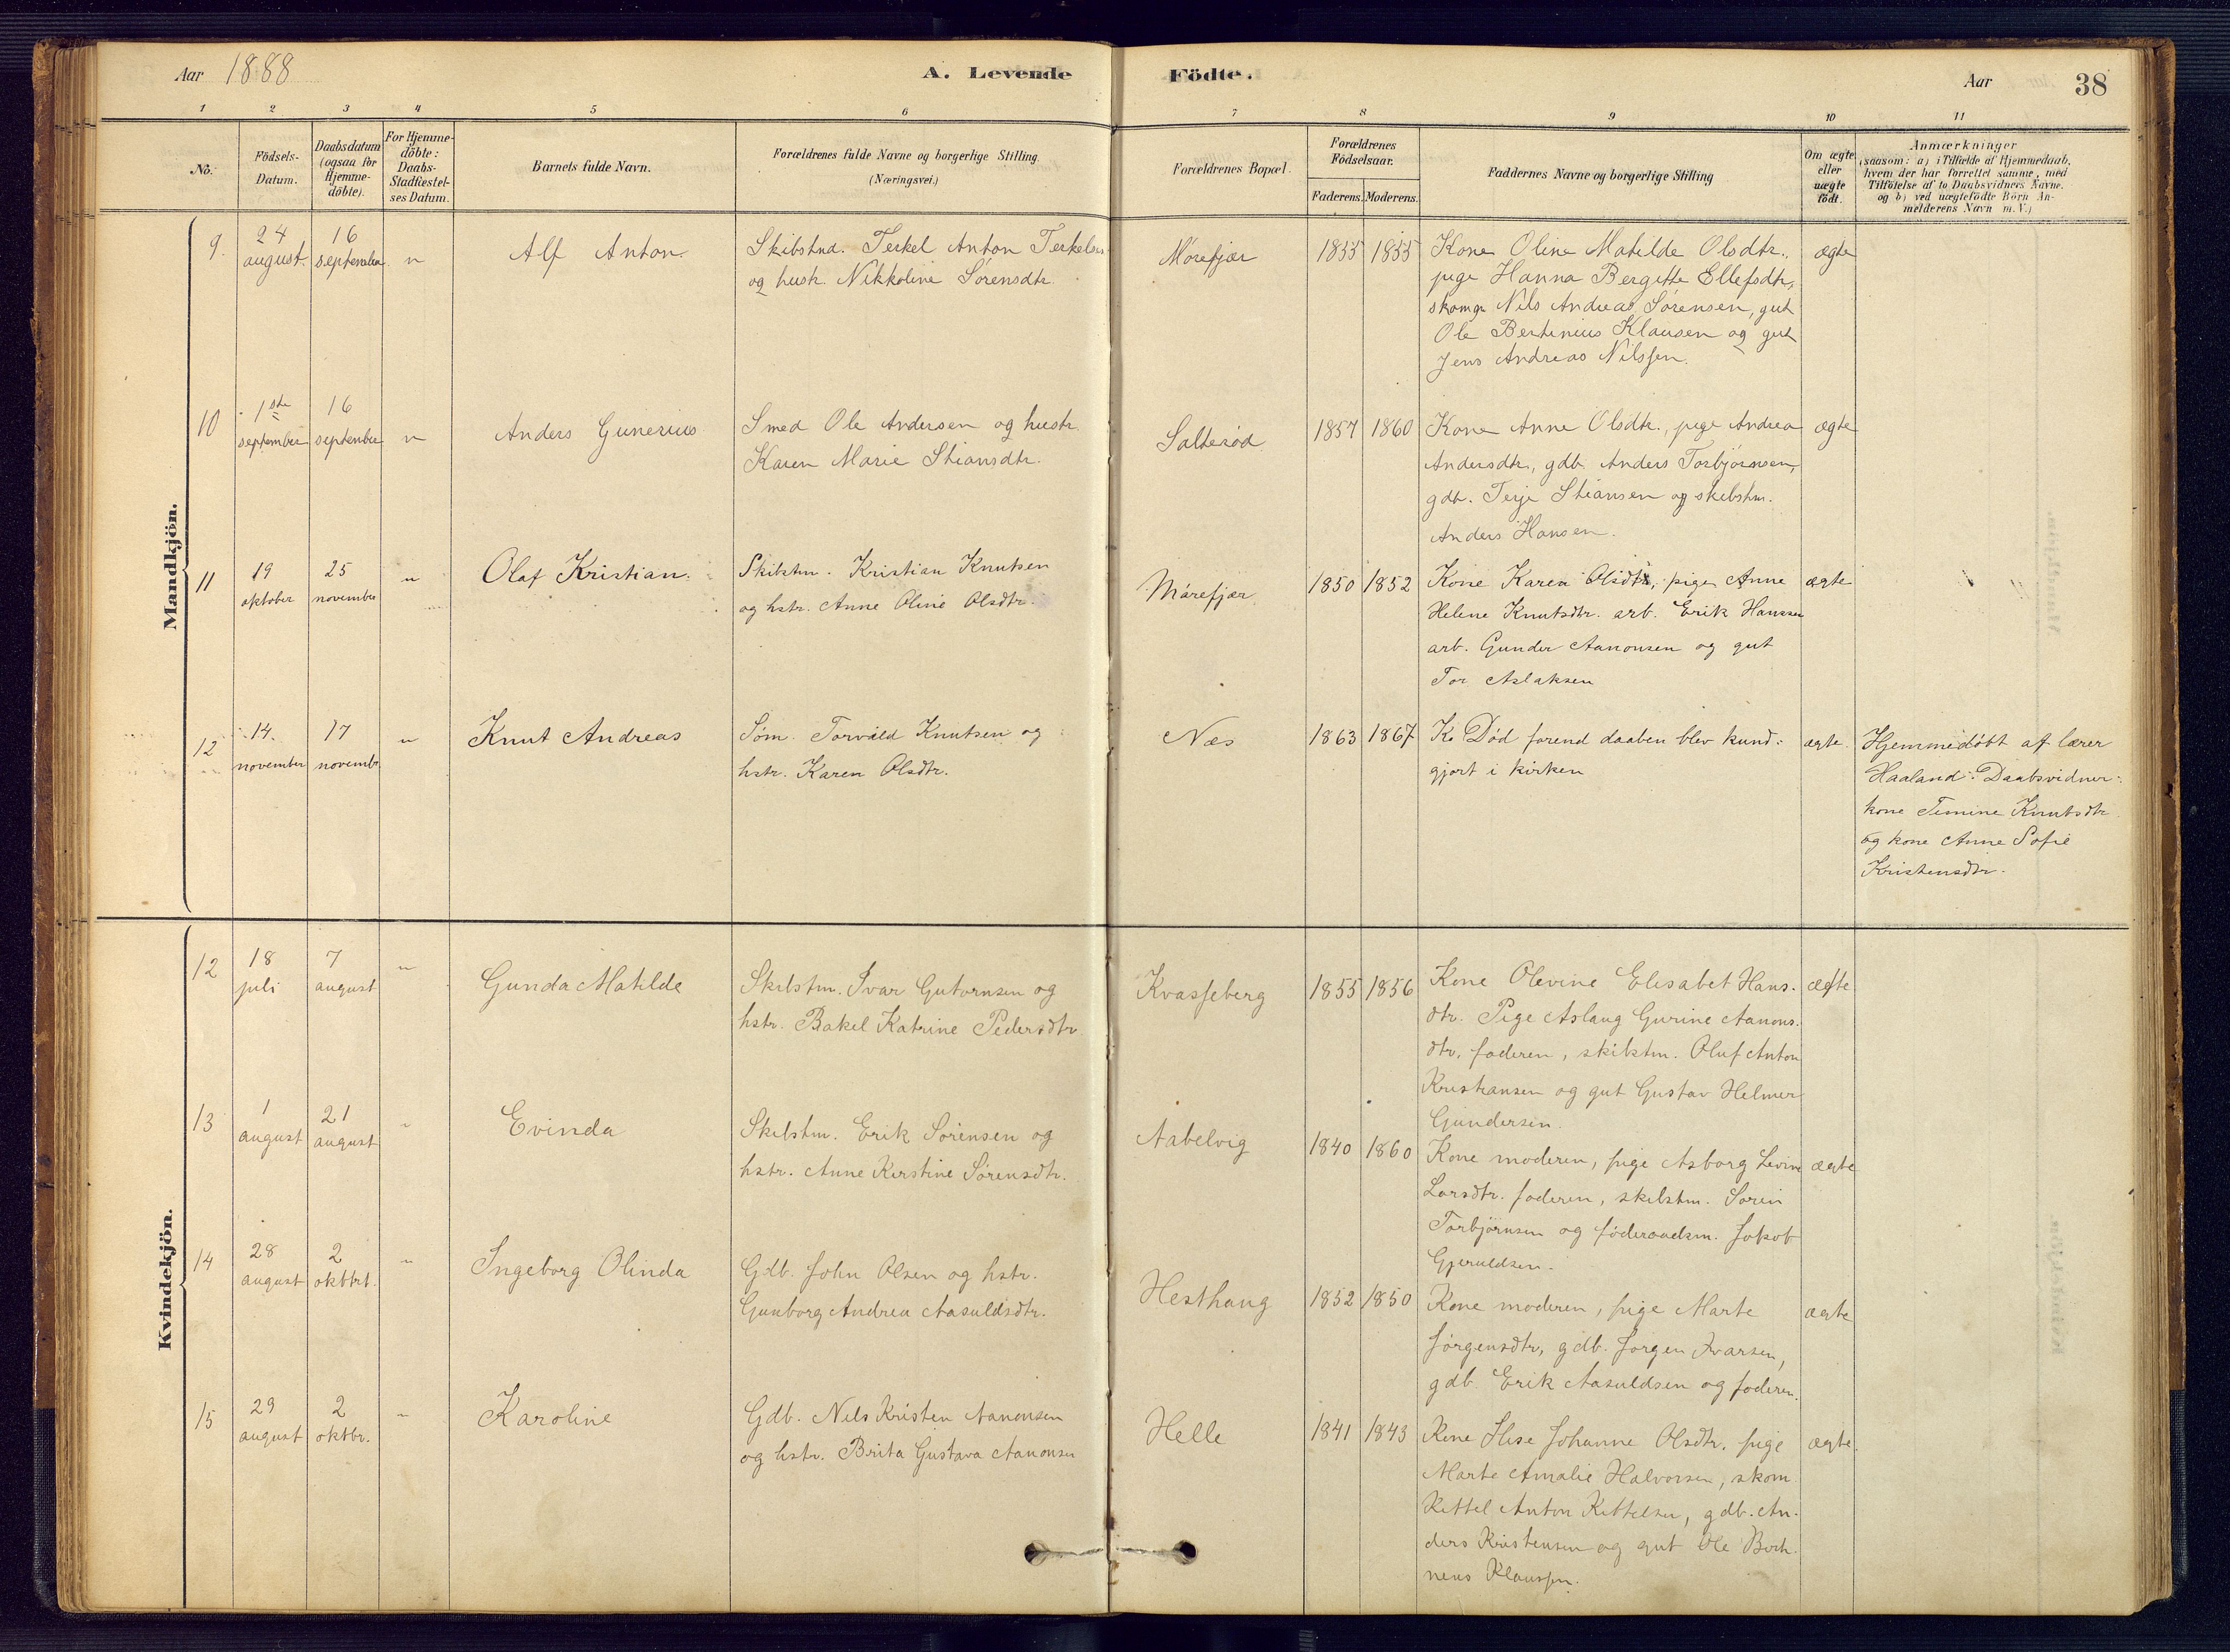 Aar 1888
A. Levende
Födte.
Aar
38
1 2 3 4 5 6 7 8 9 10 11
No.
Födsels-
Datum.
Daabsdatum
(ogsaa for
Hjemme-
döbte).
For Hjemme-
döbte:
Daabs-
Stadfæstel-
ses Datum.
Barnets fulde Navn.
Forældrenes fulde Navne og borgerlige Stilling.
(Næringsvei.)
Forældrenes Bopæl.
Forældrenes
Födselsaar.
Faderens. Moderens.
Faddernes Navne og borgerlige Stilling
Om ægte
eller
uægte
födt.
Anmærkninger
(saasom: a) i Tilfælde af Hjemmedaab,
hvem der har forrettet samme, med
Tilföielse af to Daabsvidners Navne.
og b) ved uægtefödte Börn An-
melderens Navn m.V.)
Mandkjön.
9.
24
august.
16
september
"
Alf Anton.
Skibstmd. Terkel Anton Terkelsen
og hustr. Nikkoline Sørensdtr.
Mørefjær
1855 1855
Kone Oline Matilde Olsdtr.,
pige Hanna Bergitte Ellefsdtr,
skomgr Nils Andreas Sørensen, gut
Ole Bertinius Klausen og gut
Jens Andreas Nilssen.
ægte
10
1ste
september
16
september
"
Anders Gunerius
Smed Ole Andersen og hustr.
Karen Marie Stiansdtr.
Salterød
1857 1860
Kone Anne Olsdtr., pige Andrea
Andersdtr, gdb. Anders Torbjørnsen,
gdb. Terje Stiansen og skibstm.
Anders Hansen.
ægte
11
19
oktober
25
november
"
Olaf Kristian.
Skibstm. Kristian Knutsen
og hstr. Anne Oline Olsdtr.
Mørefjær
1850 1852
Kone Karen Olsdtr, pige Anne
Helene Knutsdtr. arb. Erik Hanssen
arb. Gunder Aanonsen og gut
Tor Aslaksen
ægte
12
14.
november
17
novembr
"
Knut Andreas
Søm. Torvald Knutsen og
hstr. Karen Olsdtr.
Næs
1863 1867
Død forend daaben blev kund-
gjort i kirken
ægte.
Hjemmedøbt af lærer
Haaland. Daabsvidner:
kone Temine Knutsdtr
og kone Anne Sofie
Kristensdtr.
Kvindekjön.
12
18
juli
7
august
"
Gunda Matilde
Skibstm. Ivar Gutormsen og
hstr. Bakel Katrine Pedersdtr
Kvasseberg
1855 1856
Kone Olevine Elisabet Hans-
dtr. Pige Aslaug Gurine Aanons-
dtr. faderen, skibstm. Oluf Anton
Kristiansen og gut Gustav Helmer
Gundersen.
ægte
13
1
august
21
august
"
Evinda
Skibstm. Erik Sørensen og
hstr. Anne Kirstine Sørensdtr.
Aabelvig
1840 1860
Kone moderen, pige Asborg Levine
Larsdtr. faderen, skibstm. Søren
Torbjørnsen og føderaadsm. Jakob
Gjeruldsen.
ægte
14
28
august
2
oktbr.
"
Ingeborg Olinda
Gdb. John Olsen og hstr.
Gunborg Andrea Aasuldsdtr.
Hesthaug
1852 1850
Kone moderen, pige Marte
Jørgensdtr, gdb. Jørgen Ivarsen,
gdb Erik Aasuldsen og faderen.
ægte
15
29
august
2
oktbr.
"
Karoline
Gdb. Nils Kristen Aanonsen
og hstr. Brita Gustava Aanonsen
Helle
1841 1843
Kone Ilise Johanne Olsdtr. pige
Marte Amalie Halvorsen, skom.
Kittel Anton Kittelsen, gdb. An-
ders Kristensen og gut Ole Berti-
neus Klaussen.
ægte.